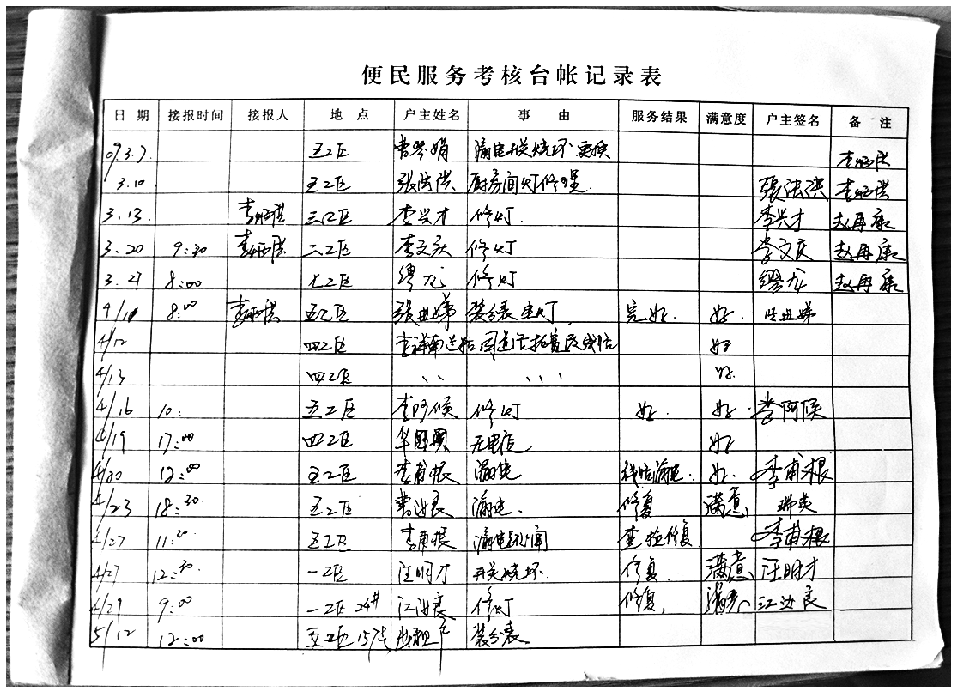 便民服务考核台帐记录表
日期 接报时间 接报人 地点 户主姓名 事由 服务结果 满意度 户主签名 备注
07.3.7. 五工区 漏电开关烧坏 更换
3.10 五工区 张法洪 厨房间灯修理. 張法洪
3.13. 三工区 李兴才 修灯. 李兴才 赵再康
3.20 9:30 二工区 李文庆 修灯 李文庆 赵再康
3.27 8:00 七工区 缪龙 修灯 缪龙 赵再康
4/10 8:00 五工区 装分表 完好. 好.
4/12 四工区 好
4/13 四工区 〃 好.
4/16 10: 五工区 李阿候 修灯 好. 好. 李阿候
4/19 17:00 四工区 华国兴 无电压. 好
4/20 12:00 五工区 李甫根 漏电 好. 李甫根
4/23 18:30 五工区 漏电. 修复 满意.
4/27 11:00 五工区 李甫根 漏电 查检修复 李甫根
4/27 12:30 一工区 汪明才 开关烧坏. 修复. 满意. 汪明才
4/29 9:00 一工区 24# 江汝良 修灯 修复. 满意 江汝良
5/12 12:00 五工区 157号 装分表.